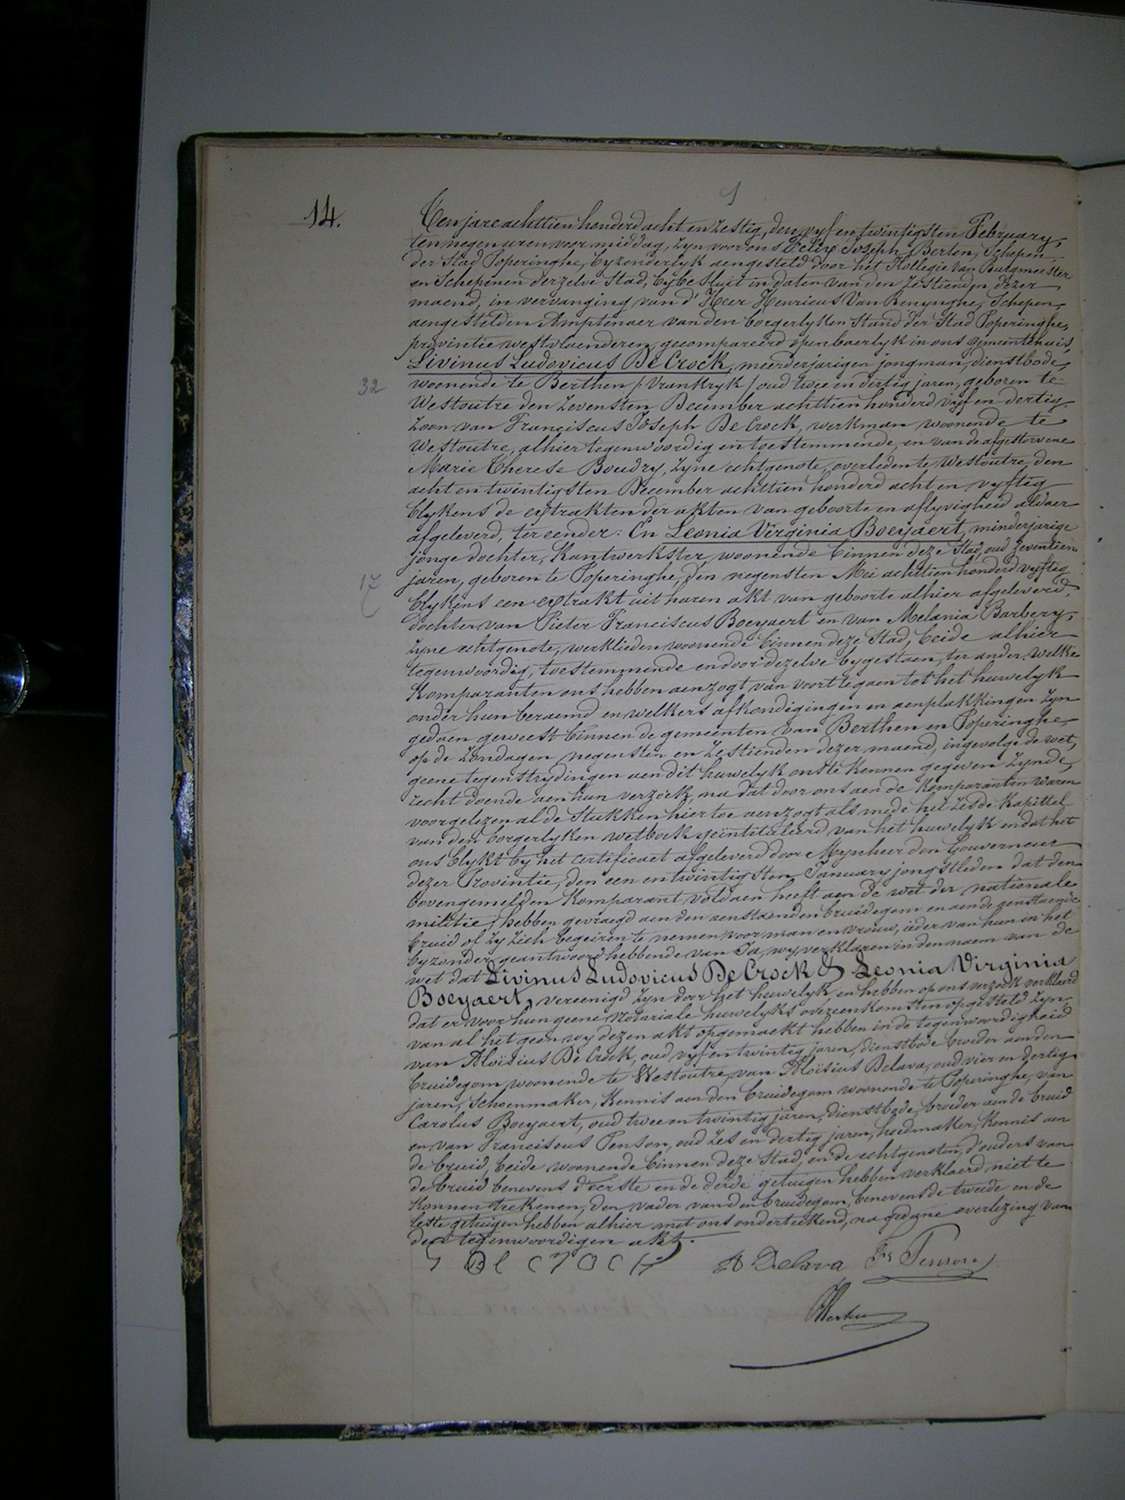 1
14.
Ten jare achttien honderd acht en zestig, den vyf en twintigsten February,
ten negen uren voormiddag, zyn voor ons Felix Joseph Berten, Schepen
der Stad Poperinghe, byzonderlyk aengesteld door het Kollegie van Burgmeester
en Schepenen derzelve Stad, by besluit in daten van den zestienden dezer
maend, in vervanging van d'Heer Henricus Van Renynghe, Schepen,
aengestelden Amptenaer van den borgerlyken Stand der Stad Poperinghe,
provintie westvlaenderen, gecompareerd openbaerlyk in ons gemeentehuis,
Livinus Ludovicus De Crock, meerderjarigen jongman, dienstbode,
32
woonende te Berthen / Vrankryk / oud twee en dertig jaren, geboren te
Westoutre den zevensten December achttien honderd vyf en dertig
zoon van Franciscus Joseph De Crock, werkman woonende te
Westoutre, alhier tegenwoordig en toestemmende, en van de afgestorvene
Marie Therese Boudry, zyne echtgenote, overleden te Westoutre, den
acht en twintigsten December achttien honderd acht en vyftig
blykens de extrakten der akten van geboorte en aflyvigheid aldaer
afgeleverd, ter eender: En Leonia Virginia Boeyaert, minderjarige
jonge dochter, kantwerkster, woonende binnen deze Stad, oud zeventien
17
jaren, geboren te Poperinghe, den negensten Mei achttien honderd vyftig
blykens een extrakt uit haren akt van geboorte alhier afgeleverd,
dochter van Pieter Franciscus Boeyaert en van Melania Barbery,
zyne echtgenote, werklieden woonende binnen deze Stad, beide alhier
tegenwoordig, toestemmende en door dezelve bygestaen, ter ander. Welke
Komparanten ons hebben aenzogt van voort te gaen tot het huwelyk
onder hun beraemd en welkers afkondigingen en aenplakkingen zyn
gedaen geweest binnen de gemeenten van Berthen en Poperinghe
op de Zondagen, negensten en zestienden dezer maend, ingevolge de wet,
geene tegenstrydingen aen dit huwelyk ons te kennen gegeven zynde
recht doende aen hun verzoek, na dat door ons aen de Komparanten waren
voorgelezen al de stukken hier toe aenzogt als mede het zesde Kapittel
van den borgerlyken wetboek geintituleerd van het huwelyk en dat het
ons blykt by het certificaet afgeleverd door Mynheer den Gouverneur
dezer Provintie, den een en twintigsten January jongstleden dat den
bovengemelden Komparant voldaen heeft aen de wet der nationale
militie, hebben gevraegd aen den aenstaenden bruidegom en aen de aenstaende
bruid of zy zich begeiren te nemen voor man en vrouw, ider van hun in het
byzonder geantwoord hebbende van Ja, wy verklaren in den naem van de
wet dat Livinus Ludovicus De Crock & Leonia Virginia
Boeyaert, vereenigd zyn door het huwelyk en hebben op ons verzoek verklaerd
dat er voor hun geene notariale huwelyks overeenkomsten opgesteld zyn
van al het geen wy dezen akt opgemaekt hebben in de tegenwoordigheid
van Aloïsius De Crock, oud vyf en twintig jaren, dienstbode broeder aen den
bruidegom, woonende te Westoutre, van Aloïsius Delava, oud vier en dertig
jaren, Schoenmaker, kennis aen den bruidegom woonende te Poperinghe, van
Carolus Boeyaert, oud twee en twintig jaren, dienstbode, broeder aen de bruid
en van Franciscus Penson, oud zes en dertig jaren, hoedmaker, kennis aen
de bruid, beide woonende binnen deze Stad, en de echtgenoten, d'ouders van
de bruid benevens d'eerste en de derde getuigen hebben verklaerd niet te
konnen teekenen, den vader van den bruidegom, benevens de tweede en de
leste getuigen hebben alhier met ons onderteekend, na gedane overlezing van
den tegenwoordigen akt.
De Crock A Delava Fr Penson